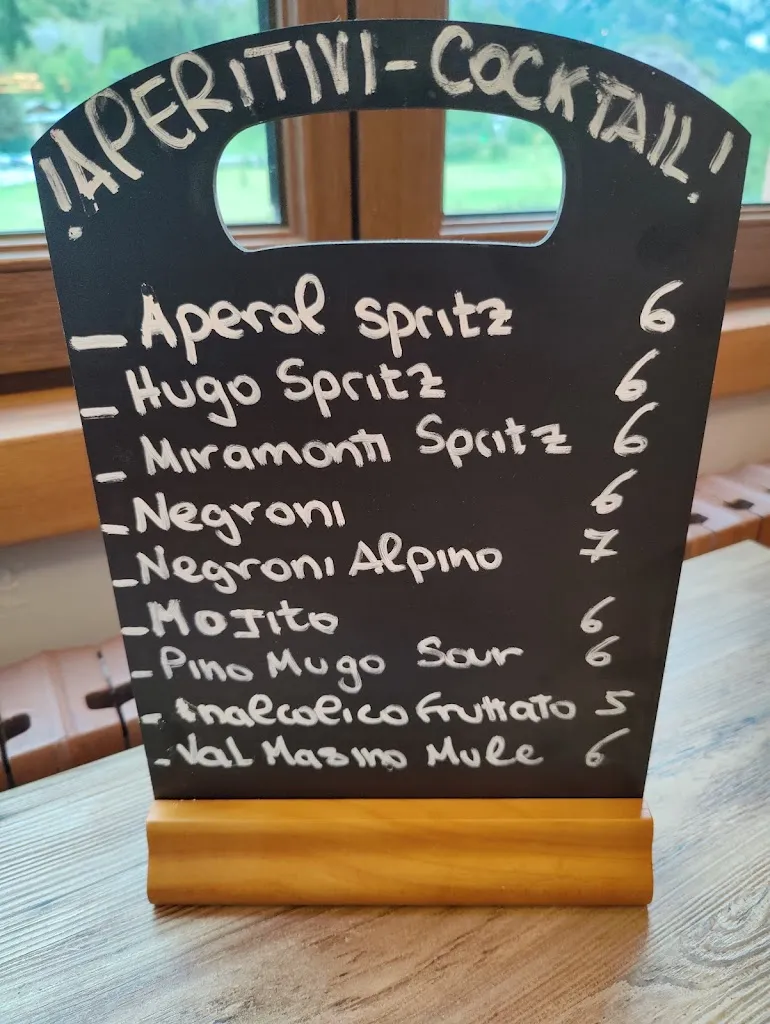 ¡APERITIVI-COCKTAIL!
- Aperol Spritz 6
- Hugo Spritz 6
- Miramonti Spritz 6
- Negroni 6
- Negroni Alpino 7
- Mojito 6
- Pino Mugo Sour 6
- Analcolico Fruttato 5
- Val Masino Mule 6